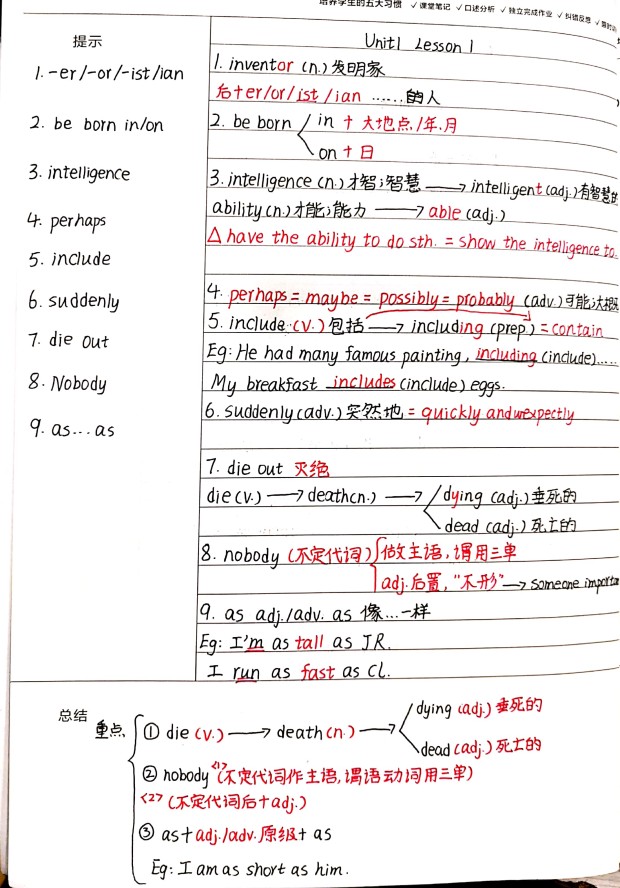 培养学生的五大习惯 ✓课堂笔记 ✓口述分析 ✓独立完成作业 ✓纠错反思
提示
1. -er/-or/-ist/ian
2. be born in/on
3. intelligence
4. perhaps
5. include
6. suddenly
7. die out
8. Nobody
9. as...as
Unit1 Lesson 1
1. inventor (n.) 发明家
后+er/or/ist/ian ......的人
2. be born in + 大地点/年.月
on + 日
3. intelligence (n.) 才智;智慧 → intelligent (adj.) 有智慧的
ability (n.) 才能;能力 → able (adj.)
△ have the ability to do sth. = show the intelligence to.
4. perhaps = maybe = possibly = probably (adv.) 可能;大概
5. include (v.) 包括 → including (prep.) = contain
Eg: He had many famous painting, including (include)......
My breakfast includes (include) eggs.
6. suddenly (adv.) 突然地 = quickly and unexpectly
7. die out 灭绝
die (v.) → death (n.) → dying (adj.) 垂死的
dead (adj.) 死亡的
8. nobody (不定代词) 做主语, 谓用三单
adj. 后置, "不形" → someone importa
9. as adj./adv. as 像...一样
Eg: I'm as tall as JR.
I run as fast as CL.
总结
重点
① die (v.) → death (n.) → dying (adj.) 垂死的
dead (adj.) 死亡的
② nobody <1> (不定代词作主语, 谓语动词用三单)
<2> (不定代词后+adj.)
③ as + adj./adv. 原级 + as
Eg: I am as short as him.